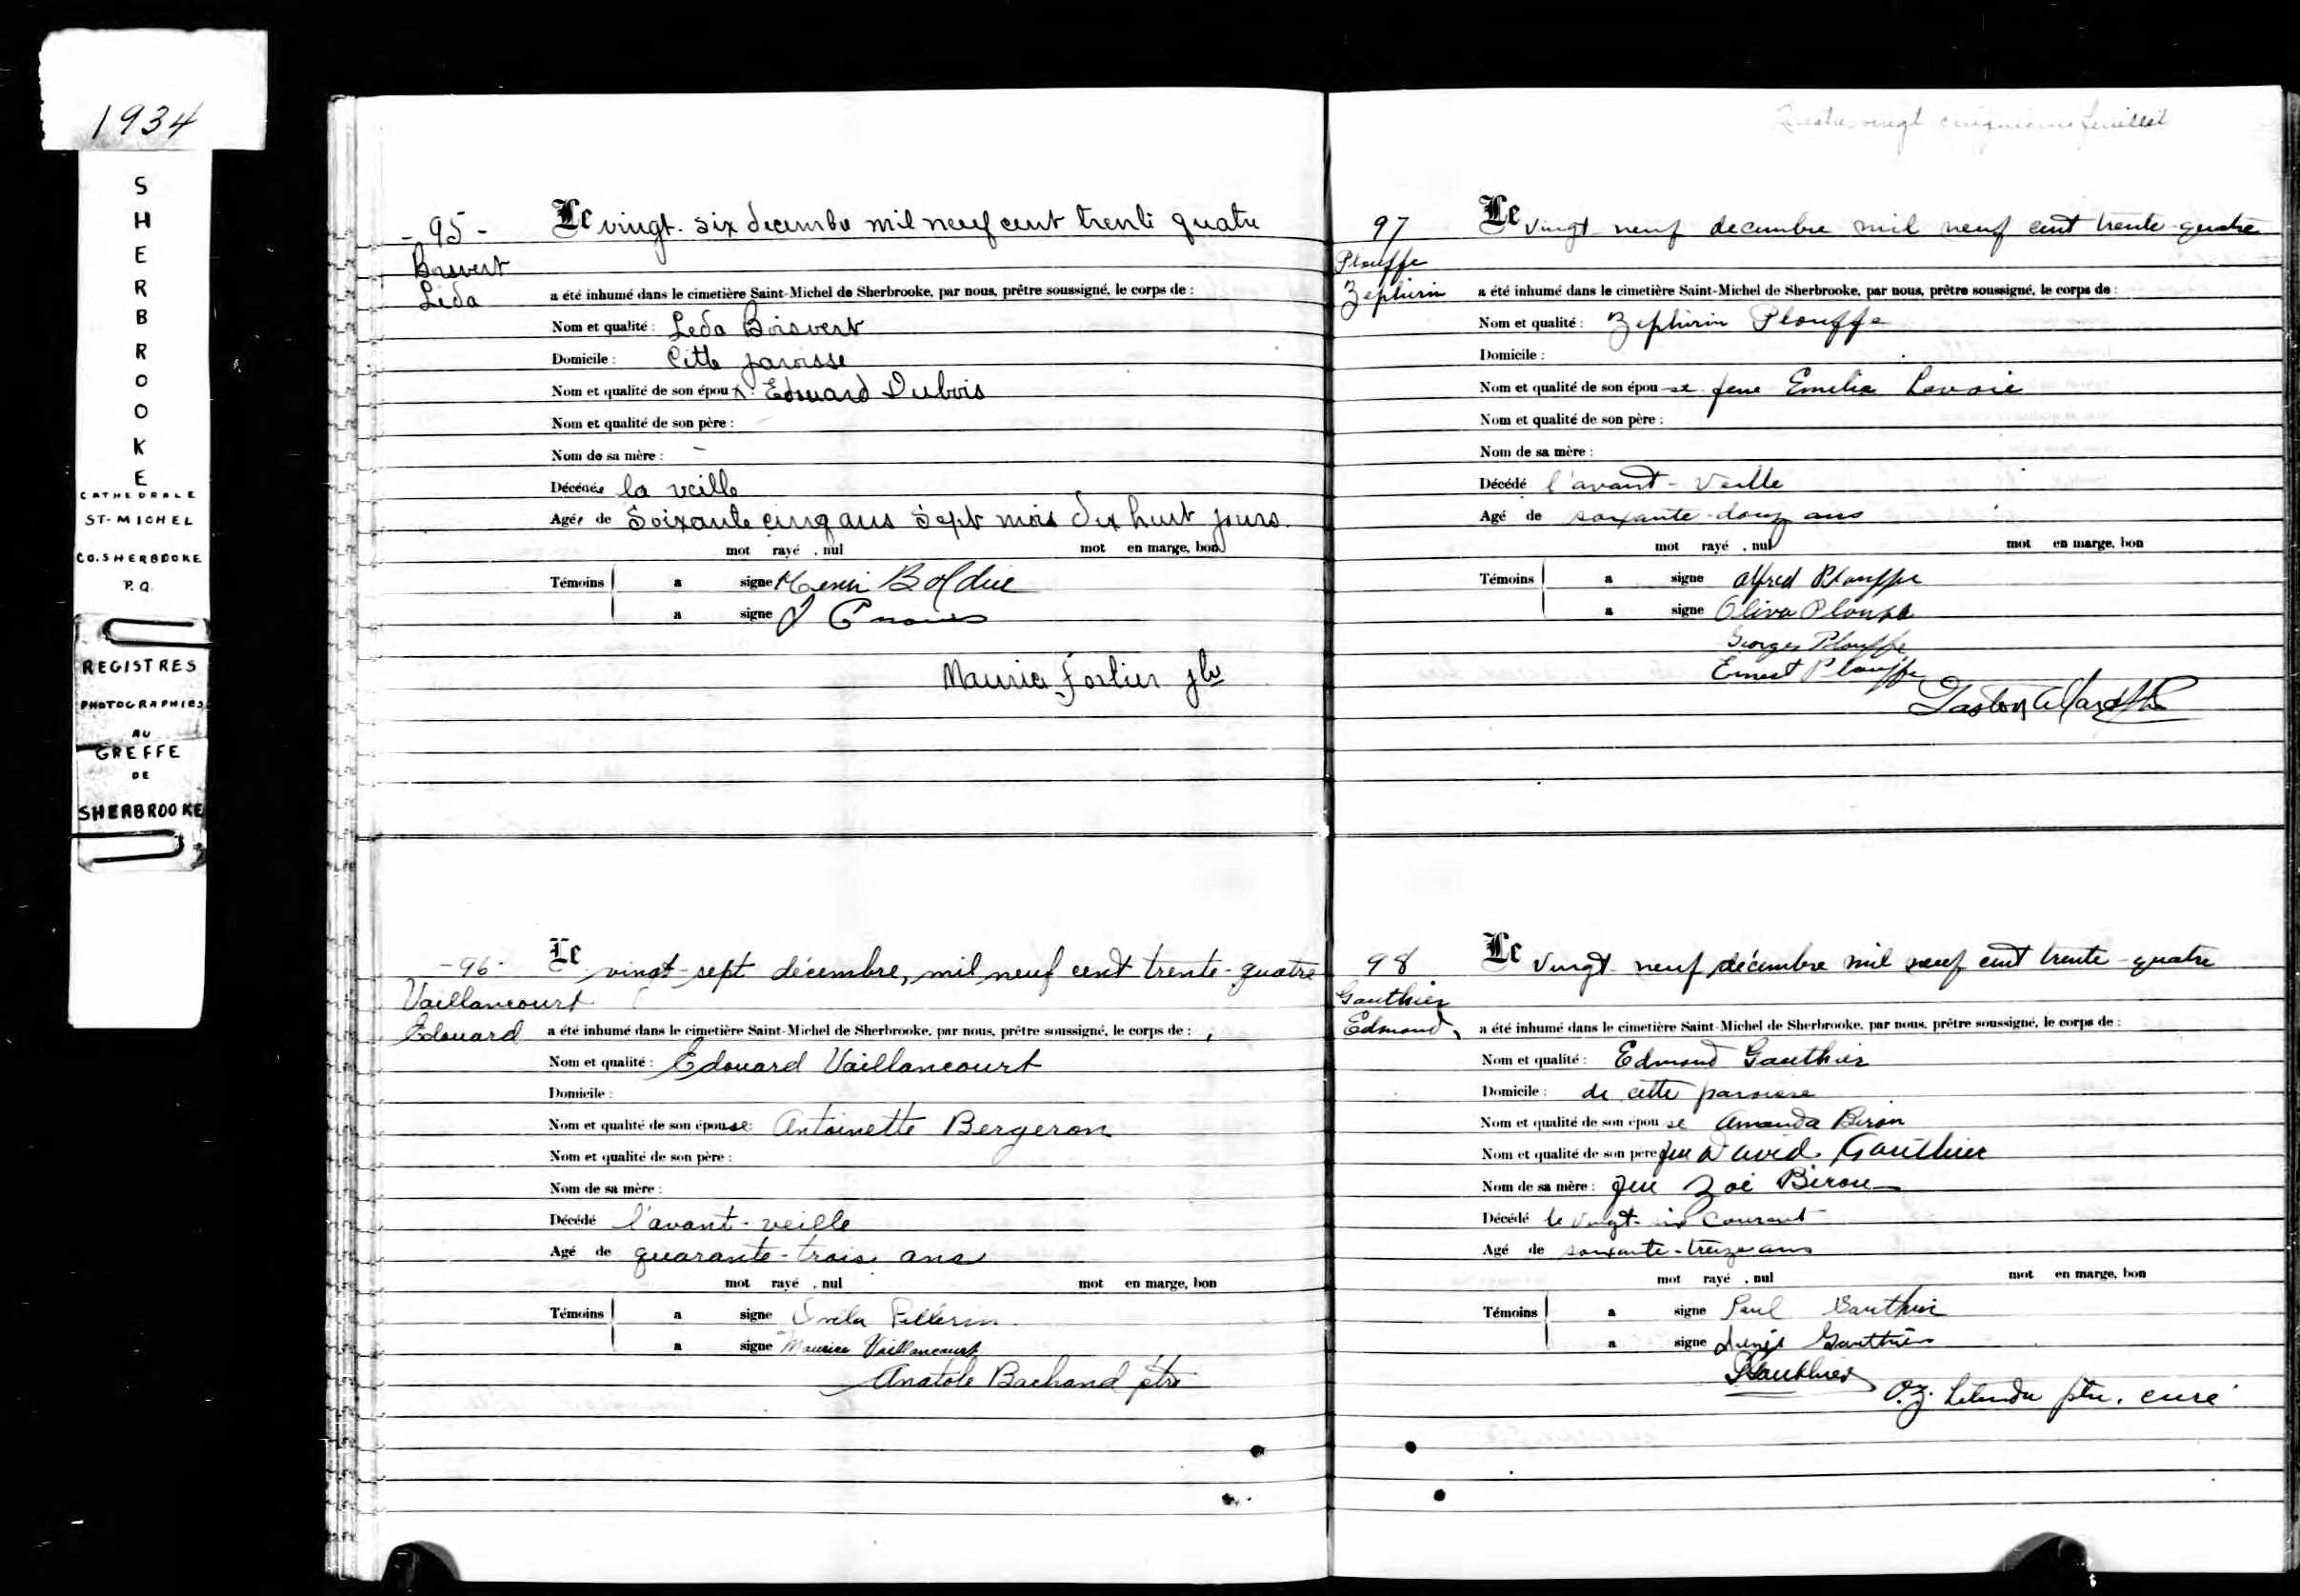 1934
SHERBROOKE
CATHEDRALE
ST-MICHEL
CO. SHERBOOKE
P.Q.
REGISTRES
PHOTOGRAPHIES
AU
GREFFE
DE
SHERBROOKE
- 95 -
Le vingt-six decembre mil neuf cent trente quatre
Boisvert
Leda
a été inhumé dans le cimetière Saint-Michel de Sherbrooke, par nous, prêtre soussigné, le corps de :
Nom et qualité : Leda Boisvert
Domicile : Cette paroisse
Nom et qualité de son époux : Edouard Dubois
Nom et qualité de son père :
Nom de sa mère : -
Décédée la veille
Agée de Soixante cinq ans Sept mois dix huit jours.
mot rayé , nul mot en marge, bon
Témoins a signe Henri Bolduc
a signe J
Maurice Fortier ptre
- 96 -
Le vingt-sept décembre, mil neuf cent trente-quatre
Vaillancourt
Edouard
a été inhumé dans le cimetière Saint-Michel de Sherbrooke, par nous, prêtre soussigné, le corps de :
Nom et qualité : Edouard Vaillancourt
Domicile :
Nom et qualité de son épouse : Antoinette Bergeron
Nom et qualité de son père :
Nom de sa mère :
Décédé l'avant-veille
Agé de quarante-trois ans
mot rayé , nul mot en marge, bon
Témoins a signe Pellerin
a signe Maurice Vaillancourt
Anatole Bachand ptre
Quatre-vingt cinquième feuillet
97
Le vingt-neuf decembre mil neuf cent trente-quatre
Plouffe
Zephirin
a été inhumé dans le cimetière Saint-Michel de Sherbrooke, par nous, prêtre soussigné, le corps de :
Nom et qualité : Zephirin Plouffe
Domicile :
Nom et qualité de son épouse feue Emelia Lavoie
Nom et qualité de son père :
Nom de sa mère :
Décédé l'avant-veille
Agé de soixante-douze ans
mot rayé , nul mot en marge, bon
Témoins a signe Alfred Plouffe
a signe Oliva Plouffe
Georges Plouffe
Ernest Plouffe
Gaston Allard
98
Le vingt-neuf décembre mil neuf cent trente-quatre
Gauthier
Edmond
a été inhumé dans le cimetière Saint-Michel de Sherbrooke, par nous, prêtre soussigné, le corps de :
Nom et qualité : Edmond Gauthier
Domicile : de cette paroisse
Nom et qualité de son épouse Amanda Biron
Nom et qualité de son père feu David Gauthier
Nom de sa mère : feu Zoé Biron
Décédé le vingt-six courant
Agé de soixante-treize ans
mot rayé , nul mot en marge, bon
Témoins a signe Paul Gauthier
a signe Gauthier
Gauthier
O.Z. Letendre ptre. curé